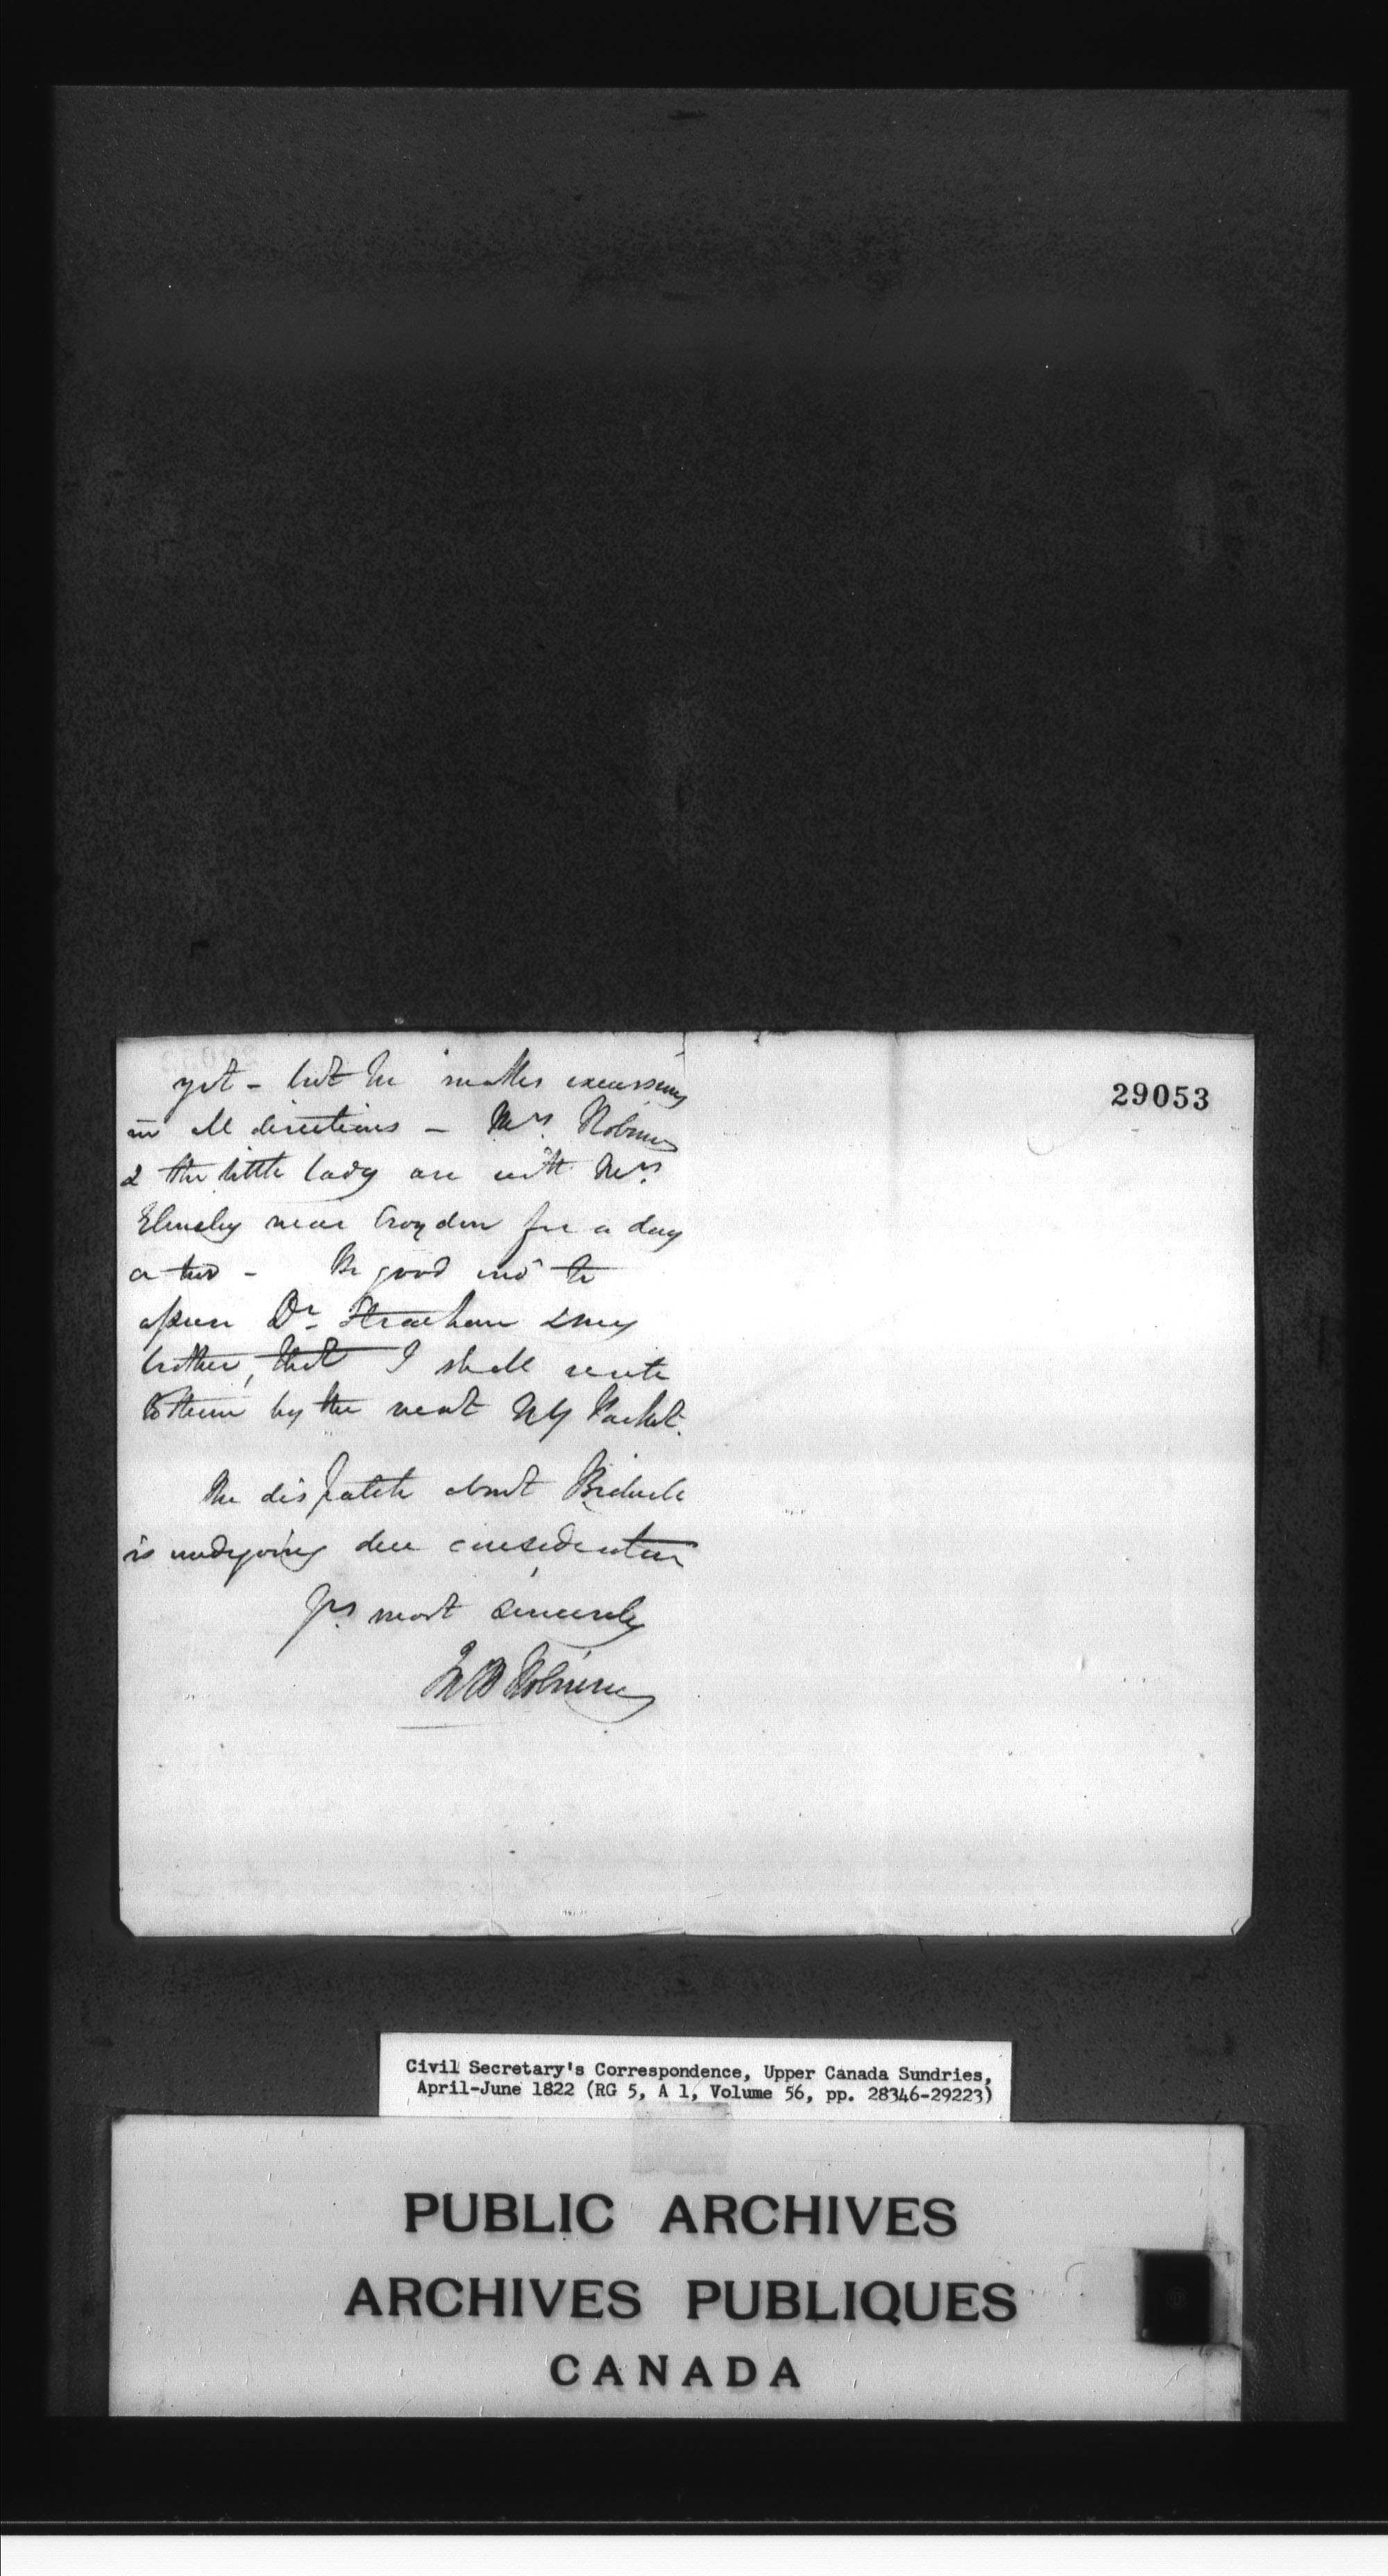 yet - but he makes excursions
in all directions - Mrs. Robinson
& the little lady are with Mrs.
Elmsley near Croydon for a day
or two - Be good eno' to
assure Dr. Strachan & my
brother, that I shall write
to them by the next NY Packet.
The dispatch about Bidwell
is undergoing due consideration
Yrs. most sincerely
Jn B Robinson
29053
Civil Secretary's Correspondence, Upper Canada Sundries,
April-June 1822 (RG 5, A 1, Volume 56, pp. 28346-29223)
PUBLIC ARCHIVES
ARCHIVES PUBLIQUES
CANADA